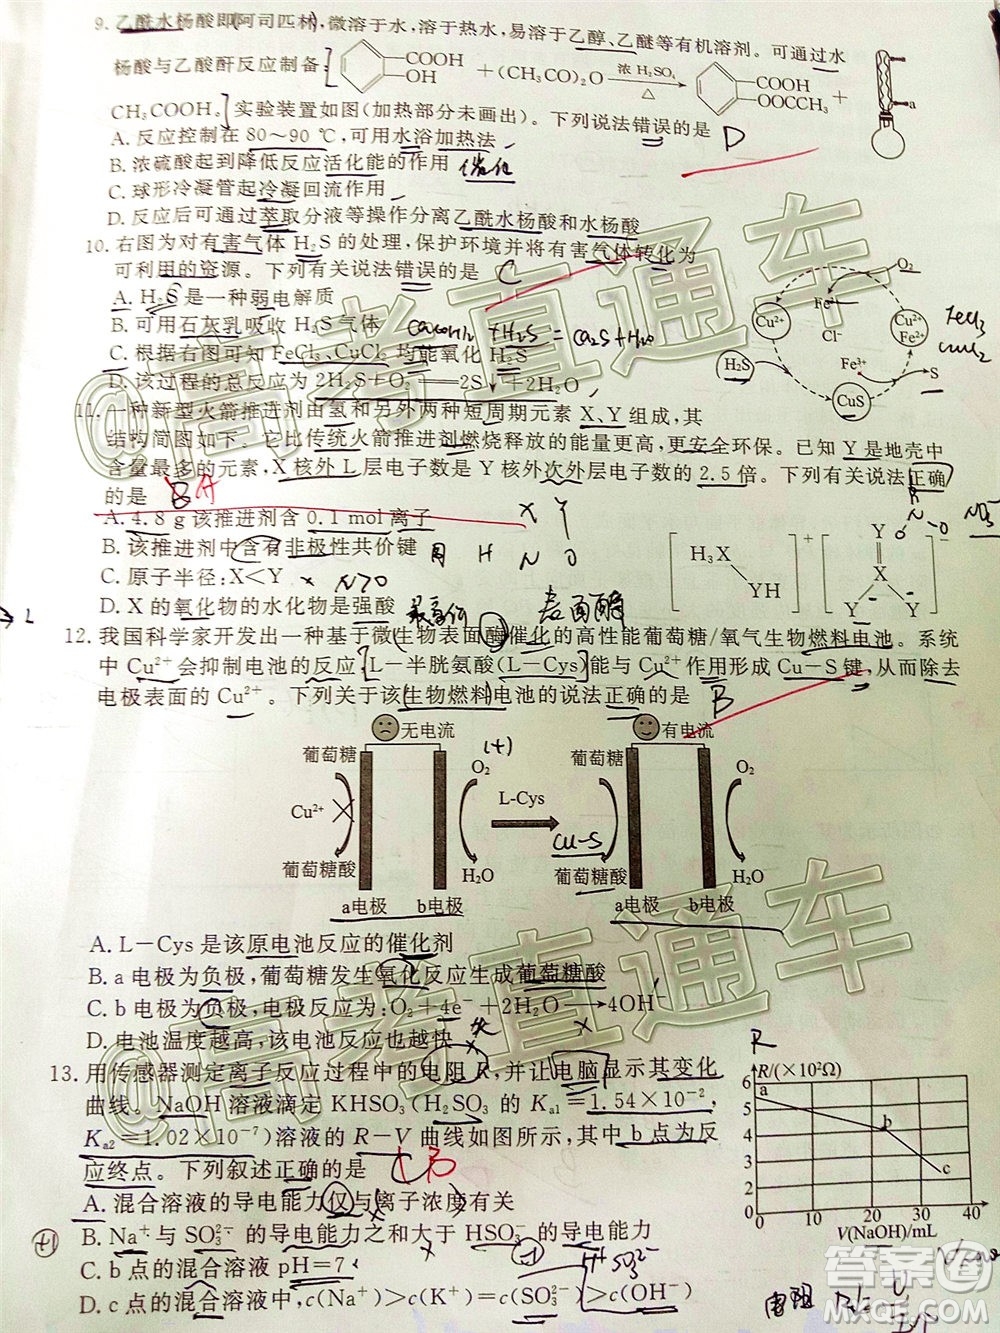 9. 乙酰水杨酸即(阿司匹林),微溶于水,溶于热水,易溶于乙醇、乙醚等有机溶剂。可通过水
杨酸与乙酸酐反应制备[ COOH OH +(CH₃CO)₂O 浓 H₂SO₄ △ COOH OOCCH₃ +
CH₃COOH。]实验装置如图(加热部分未画出)。下列说法错误的是 D
a
A. 反应控制在 80~90 ℃,可用水浴加热法
B. 浓硫酸起到降低反应活化能的作用 催化
C. 球形冷凝管起冷凝回流作用
D. 反应后可通过萃取分液等操作分离乙酰水杨酸和水杨酸
10. 右图为对有害气体 H₂S 的处理,保护环境并将有害气体转化为
可利用的资源。下列有关说法错误的是 C
A. H₂S 是一种弱电解质
B. 可用石灰乳吸收 H₂S 气体 Ca(OH)₂ + H₂S = CaS + H₂O
C. 根据右图可知 FeCl₃、CuCl₂ 均能氧化 H₂S
D. 该过程的总反应为 2H₂S+O₂══2S↓+2H₂O
O₂
Fe³⁺
Cu²⁺ Cl⁻ Cu²⁺ Fe²⁺
H₂S Fe³⁺ S
CuS
FeCl₃
CuCl₂
11. 一种新型火箭推进剂由氢和另外两种短周期元素 X、Y 组成,其
结构简图如下、它比传统火箭推进剂燃烧释放的能量更高,更安全环保。已知 Y 是地壳中
含量最多的元素,X 核外 L 层电子数是 Y 核外次外层电子数的 2.5 倍。下列有关说法正确
的是 B A
A. 4.8 g 该推进剂含 0.1 mol 离子
B. 该推进剂中含有非极性共价键
C. 原子半径:X<Y × N>O
D. X 的氧化物的水化物是强酸 最高价
X Y
H N O
[ H₃X YH ]⁺ [ Y X Y Y ]⁻
12. 我国科学家开发出一种基于微(生物表面酶催化的高性能葡萄糖/氧气生物燃料电池。系统
中 Cu²⁺会抑制电池的反应[L—半胱氨酸(L—Cys)]能与 Cu²⁺作用形成 Cu—S 键,从而除去
电极表面的 Cu²⁺。下列关于该(生物燃料)电池的说法正确的是 B
无电流 有电流
葡萄糖 (+) O₂ 葡萄糖 O₂
Cu²⁺ L-Cys Cu-S
葡萄糖酸 H₂O 葡萄糖酸 H₂O
a电极 b电极 a电极 b电极
A. L—Cys 是该原电池反应的催化剂
B. a 电极为负极,葡萄糖发生氧化反应生成葡萄糖酸
C. b 电极为负极,电极反应为:O₂+4e⁻+2H₂O──→4OH⁻
D. 电池温度越高,该电池反应也越快
13. 用传感器测定离子反应过程中的电阻 R,并让电脑显示其变化
曲线。NaOH 溶液滴定 KHSO₃(H₂SO₃ 的 Kₐ₁=1.54×10⁻²,
Kₐ₂=1.02×10⁻⁷)溶液的 R-V 曲线如图所示,其中 b 点为反
应终点。下列叙述正确的是 B
A. 混合溶液的导电能力仅与离子浓度有关
B. Na⁺与 SO₃²⁻ 的导电能力之和大于 HSO₃⁻ 的导电能力
C. b 点的混合溶液 pH=7
D. c 点的混合溶液中,c(Na⁺)>c(K⁺)=c(SO₃²⁻)>c(OH⁻)
R
R/(×10²Ω)
6
5
4
3
2
1
0 10 20 30 40
b
c
V(NaOH)/mL
电阻
@高考直通车
@高考直通车
答案圈
MXQE.COM